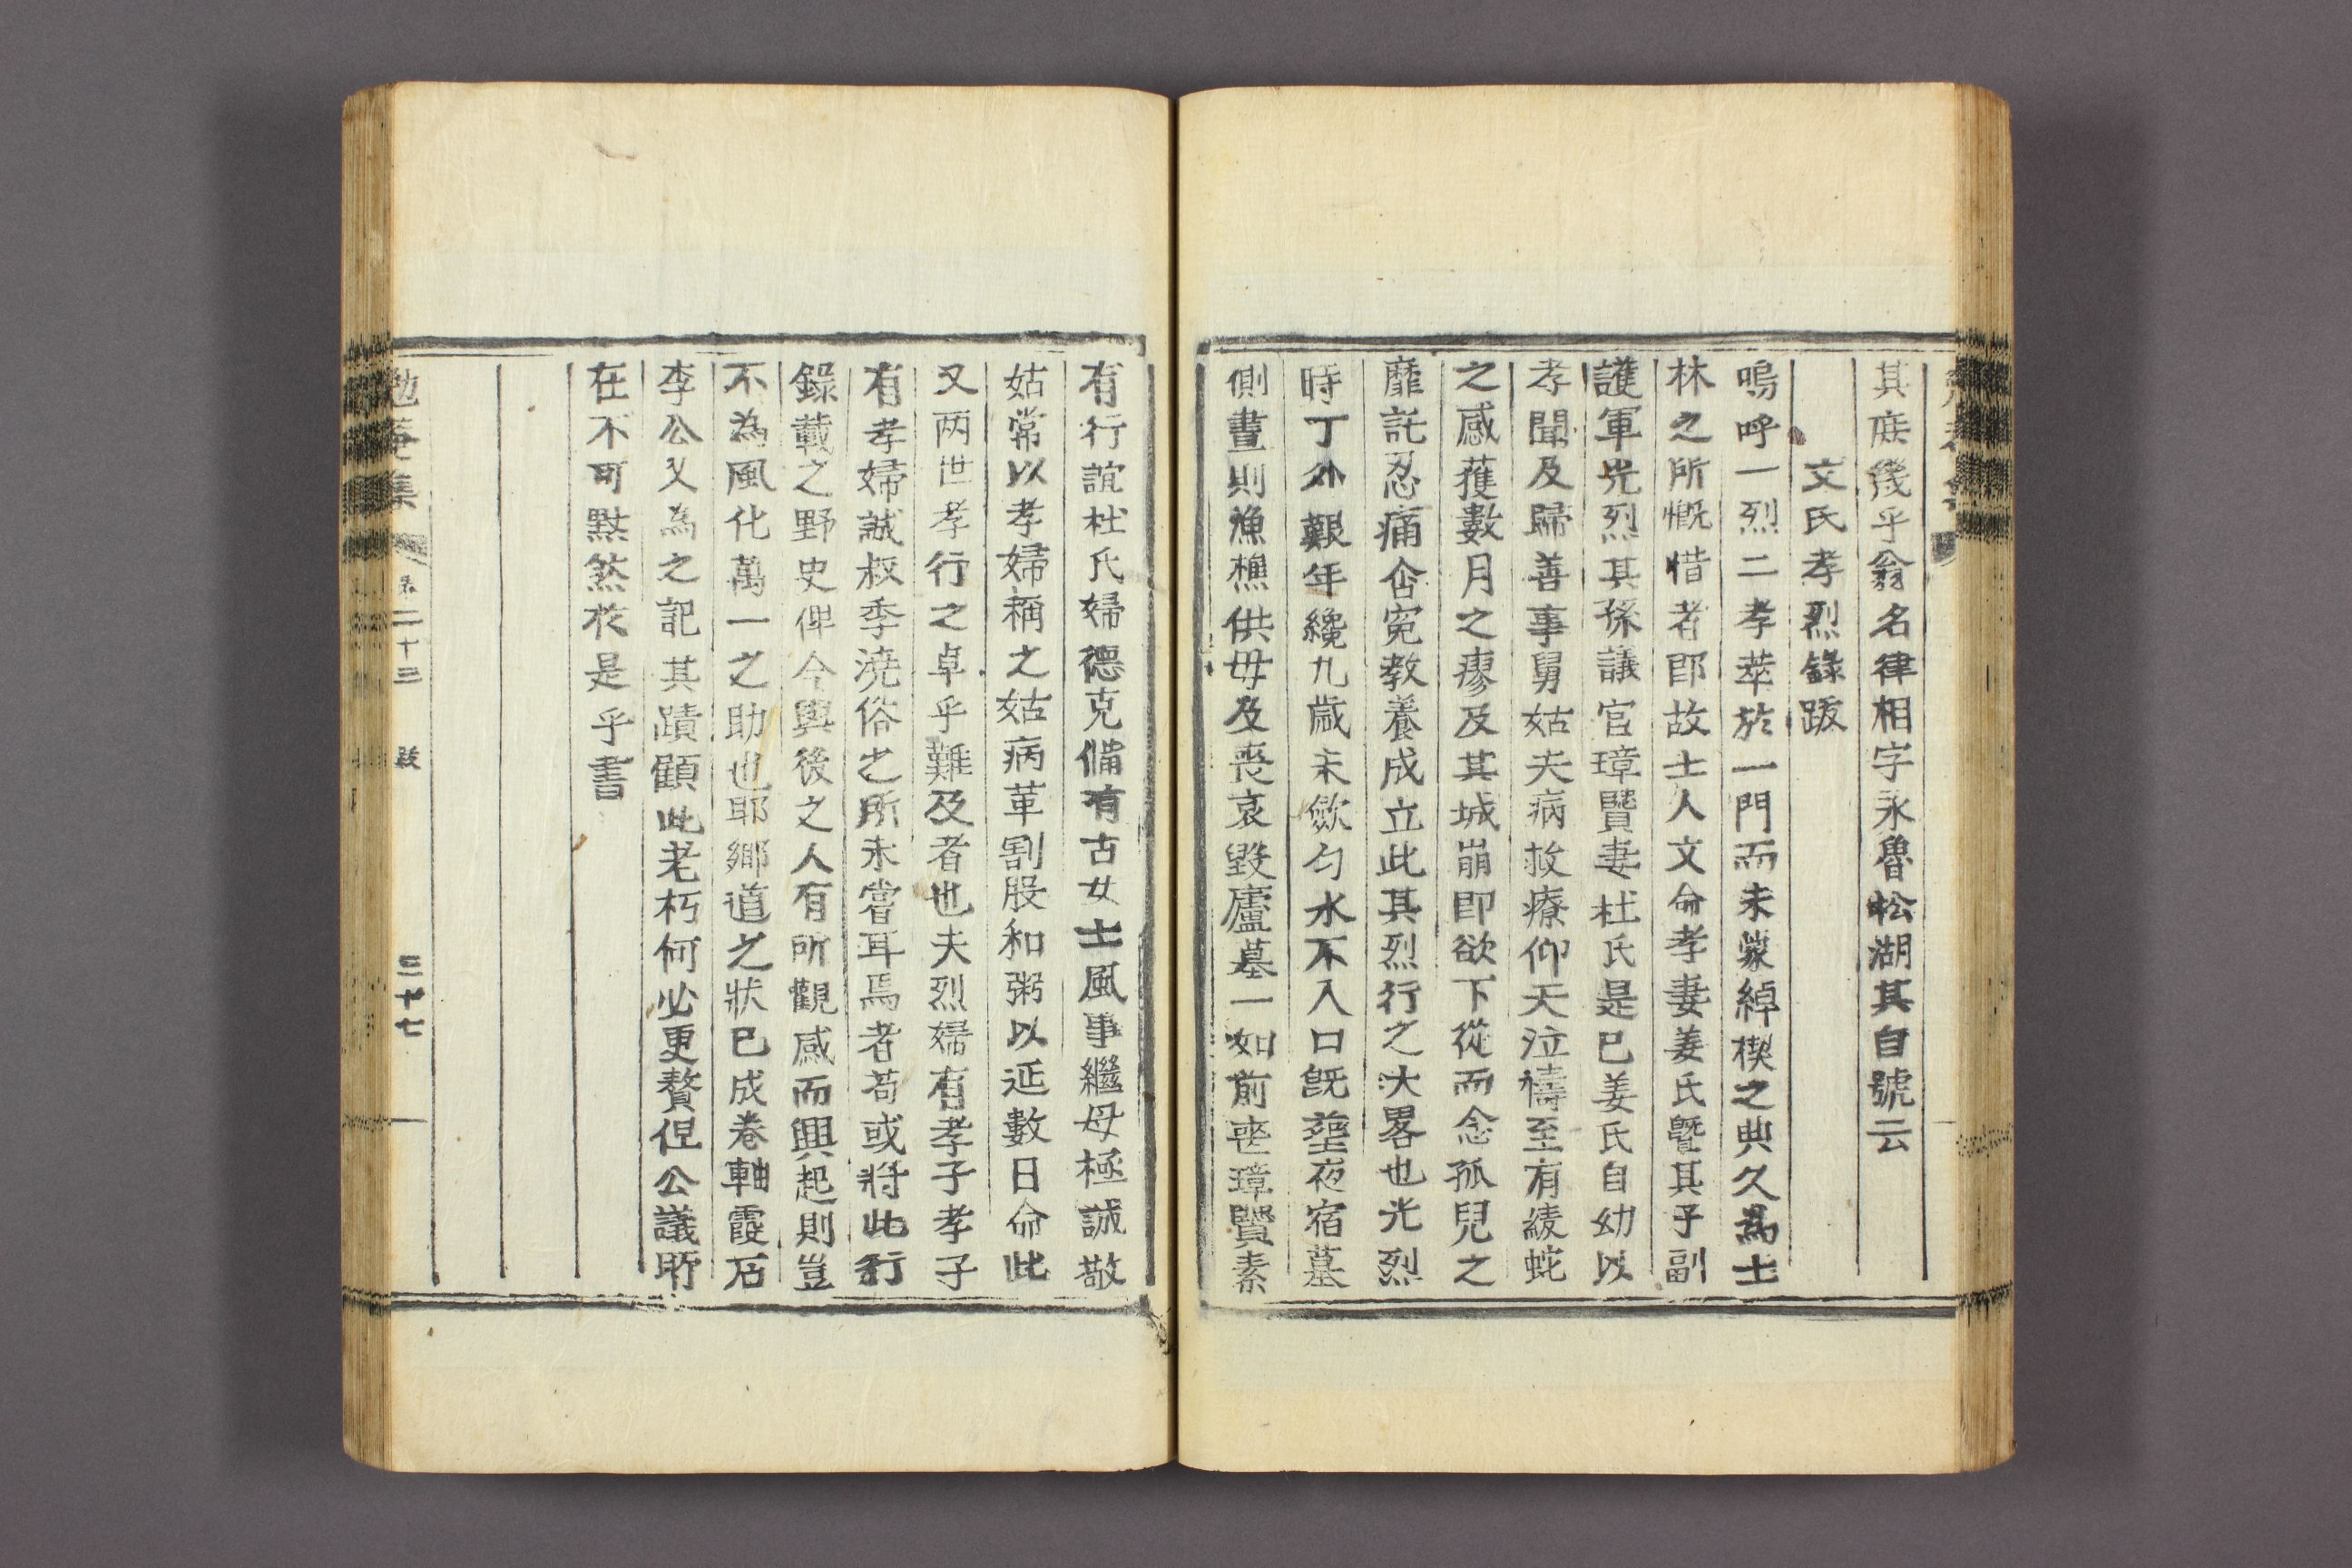 其庶幾乎翁名律相字永魯松湖其自號云
文氏孝烈錄跋
嗚呼一烈二孝萃於一門而未蒙綽楔之典久為士
林之所慨惜者即故士人文命孝妻姜氏曁其子副
護軍光烈其孫議官璋賢妻杜氏是已姜氏自幼以
孝聞及歸善事舅姑夫病救療仰天泣禱至有綾蛇
之感獲數月之瘳及其城崩即欲下從而念孤兒之
靡託忍痛含寃教養成立此其烈行之大畧也光烈
時丁外艱年纔九歲未歛勺水不入口旣葬夜宿墓
側晝則漁樵供母及喪哀毀廬墓一如前喪璋賢素
有行誼杜氏婦德克備有古女士風事繼母極誠敬
姑常以孝婦稱之姑病革割股和粥以延數日命此
又两世孝行之卓乎難及者也夫烈婦有孝子孝子
有孝婦誠叔季澆俗之所未嘗耳焉者苟或將此行
錄載之野史俾今與後之人有所觀感而興起則豈
不為風化萬一之助也耶鄉道之狀已成卷軸霞石
李公又為之記其蹟顧此老朽何必更贅但公議所
在不可默然於是乎書
勉菴集 卷二十三 跋 三十七